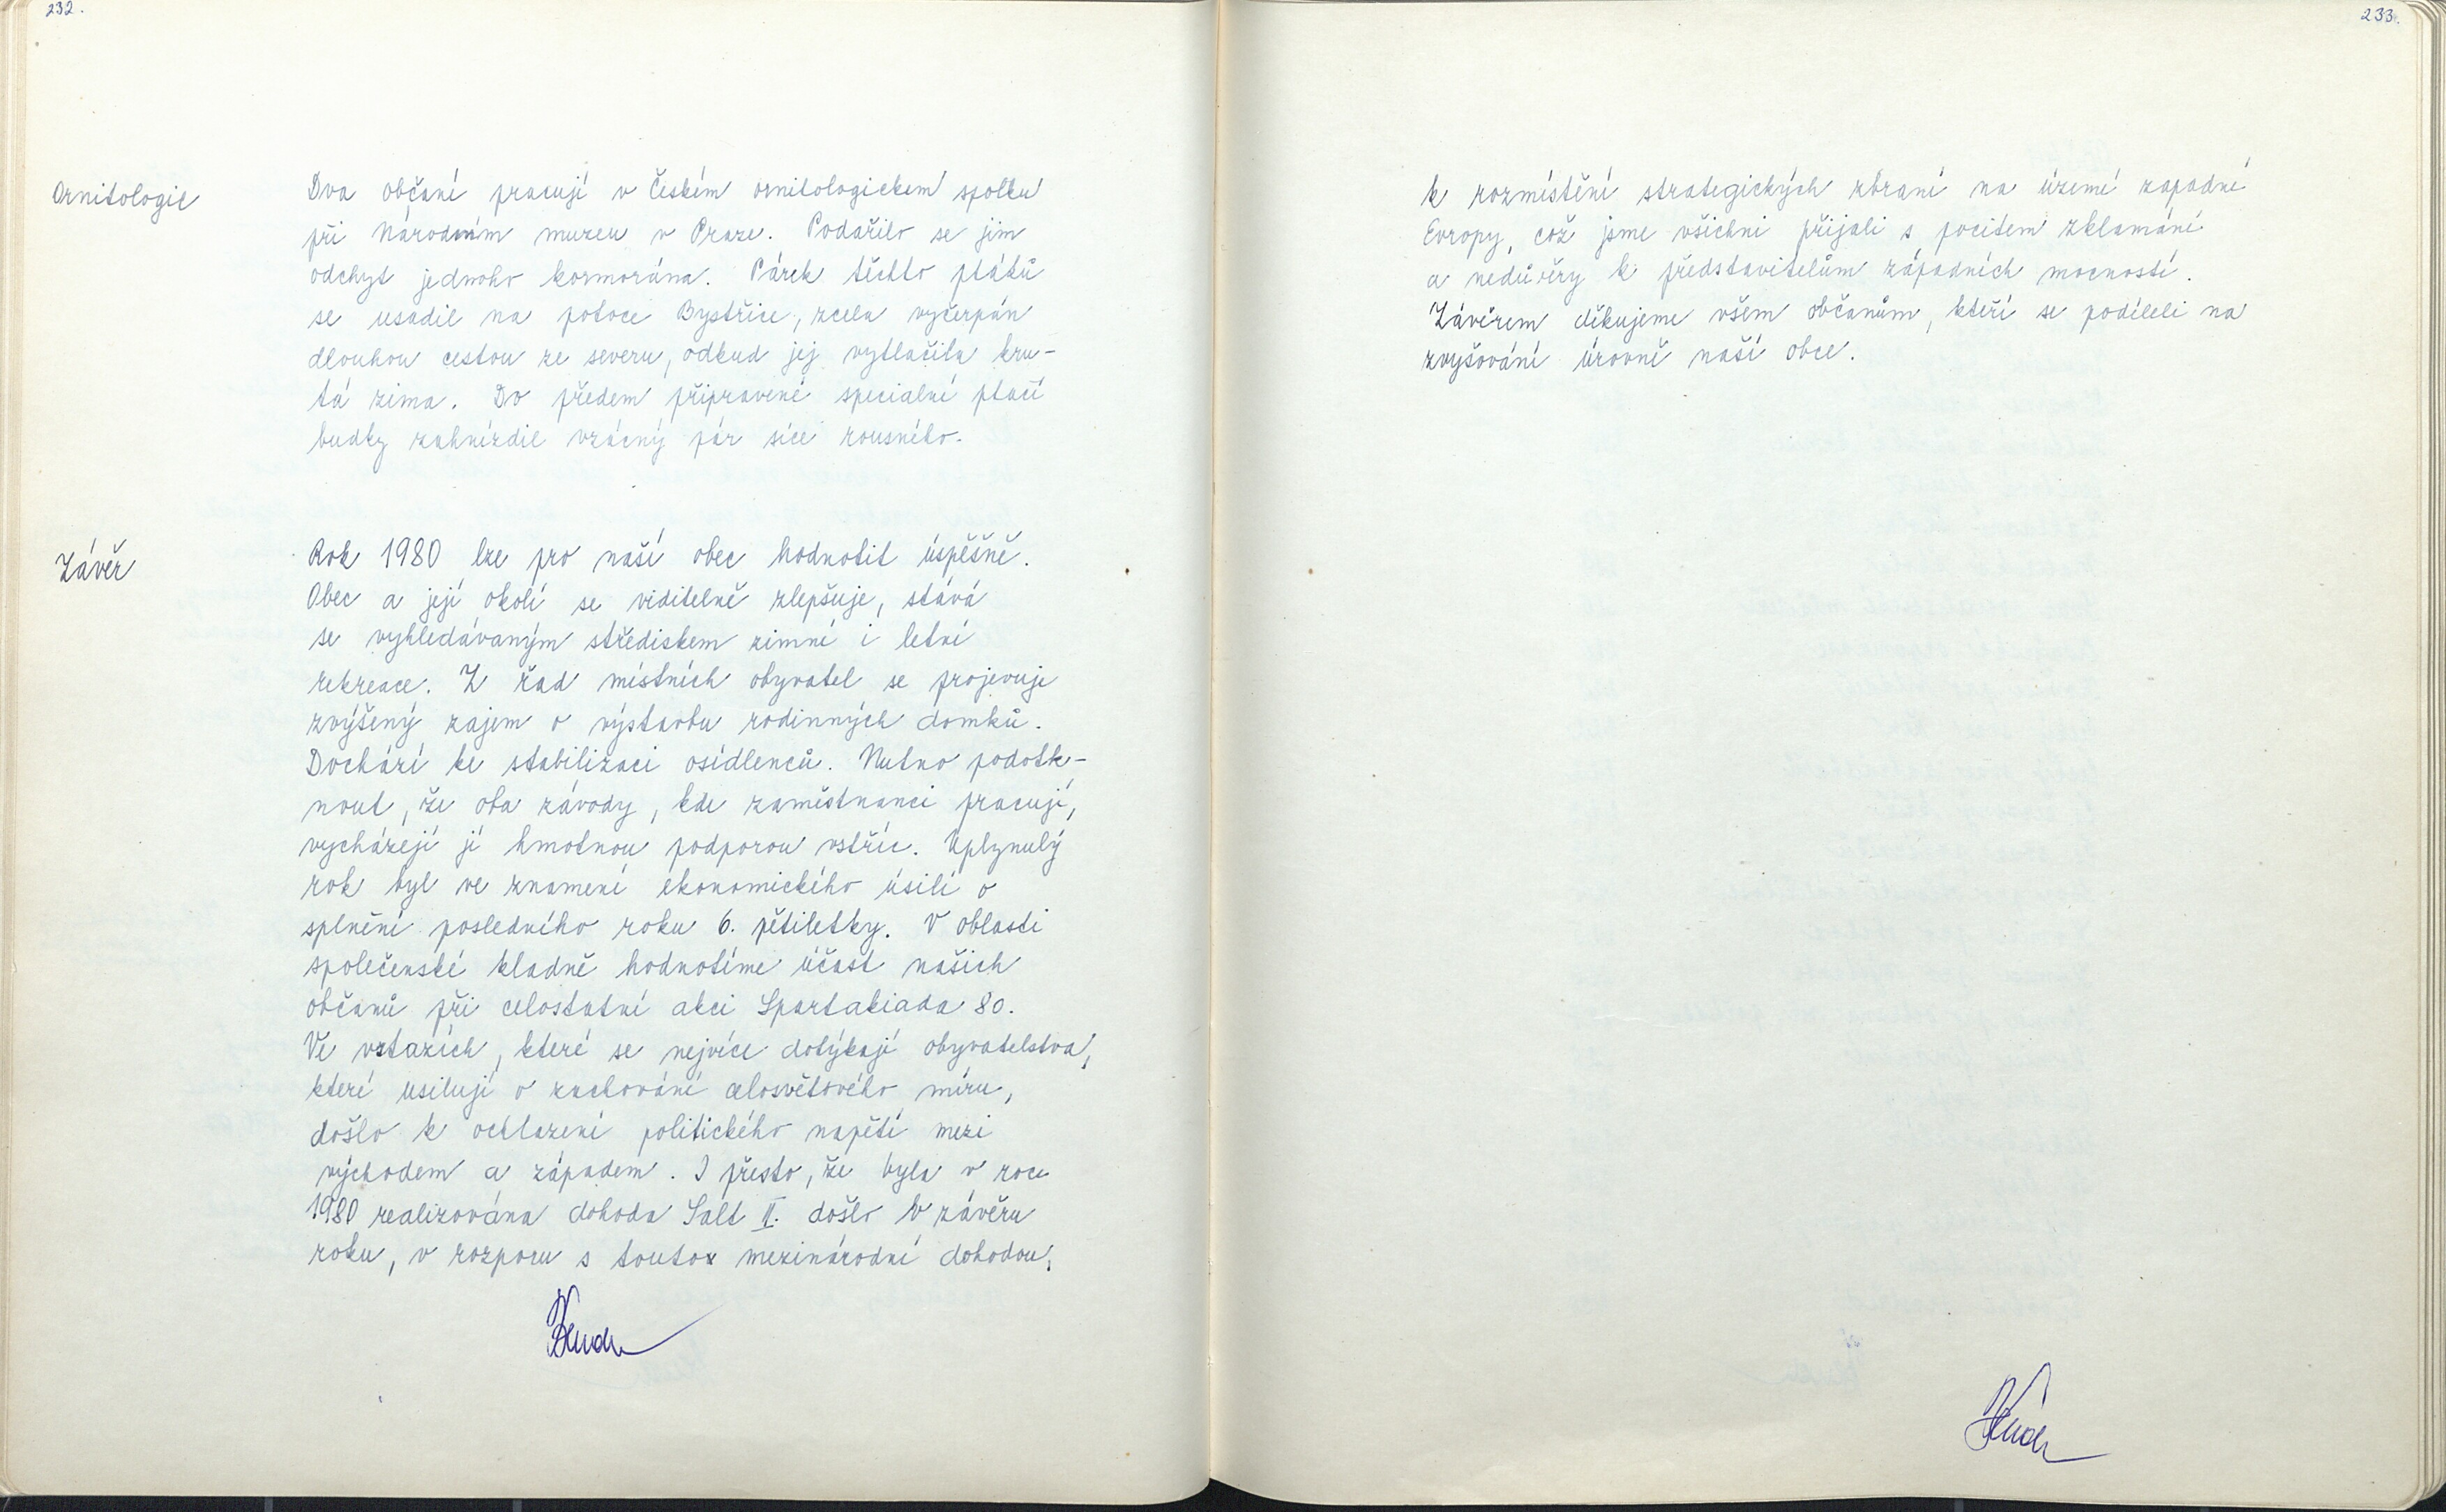 232.
Ornitologie
Dva občaní pracují v Českém ornitologickém spolku
při Národním muzeu v Praze. Podařilo se jim
odchyt jednoho kormorána. Párek těchto ptáků
se usadil na potoce Bystřice, zcela vyčerpán
dlouhou cestou ze severu, odkud jej vytlačila kru-
tá zima. Do předem připravené specialní ptačí
budky zahnízdil vzácný pár síce rousného.
Závěr
Rok 1980 lze pro naší obec hodnotit úspěšně.
Obec a její okolí se viditelně zlepšuje, stává
se vyhledávaným střediskem zimní i letní
rekreace. Z řad místních obyvatel se projevuje
zvýšený zajem o výstavbu rodinných domků.
Dochází ke stabilizaci osídlenců. Nutno podotk-
nout, že oba závody, kde zaměstnanci pracují,
vycházejí jí hmotnou podporou vstříc. Uplynulý
rok byl ve znamení ekonomického úsilí o
splnění posledního roku 6. pětiletky. V oblasti
společenské kladně hodnotíme účast našich
občanů při celostatní akci Spartakiada 80.
Ve vztazích, které se nejvíce dotýkají obyvatelstva,
které usilují o zachování celosvětového míru,
došlo k ochlazení politického napětí mezi
východem a západem. I přesto, že byla v roce
1980 realizována dohoda Salt II. došlo v závěru
roku, v rozporu s touto mezinárodní dohodou,
233.
k rozmístění strategických zbraní na území zapadní
Evropy, což jsme všichni přijali s pocitem zklamání
a nedůvěry k představitelům západních mocností.
Závěrem děkujeme všem občanům, kteří se podíleli na
zvyšování úrovně naší obce.